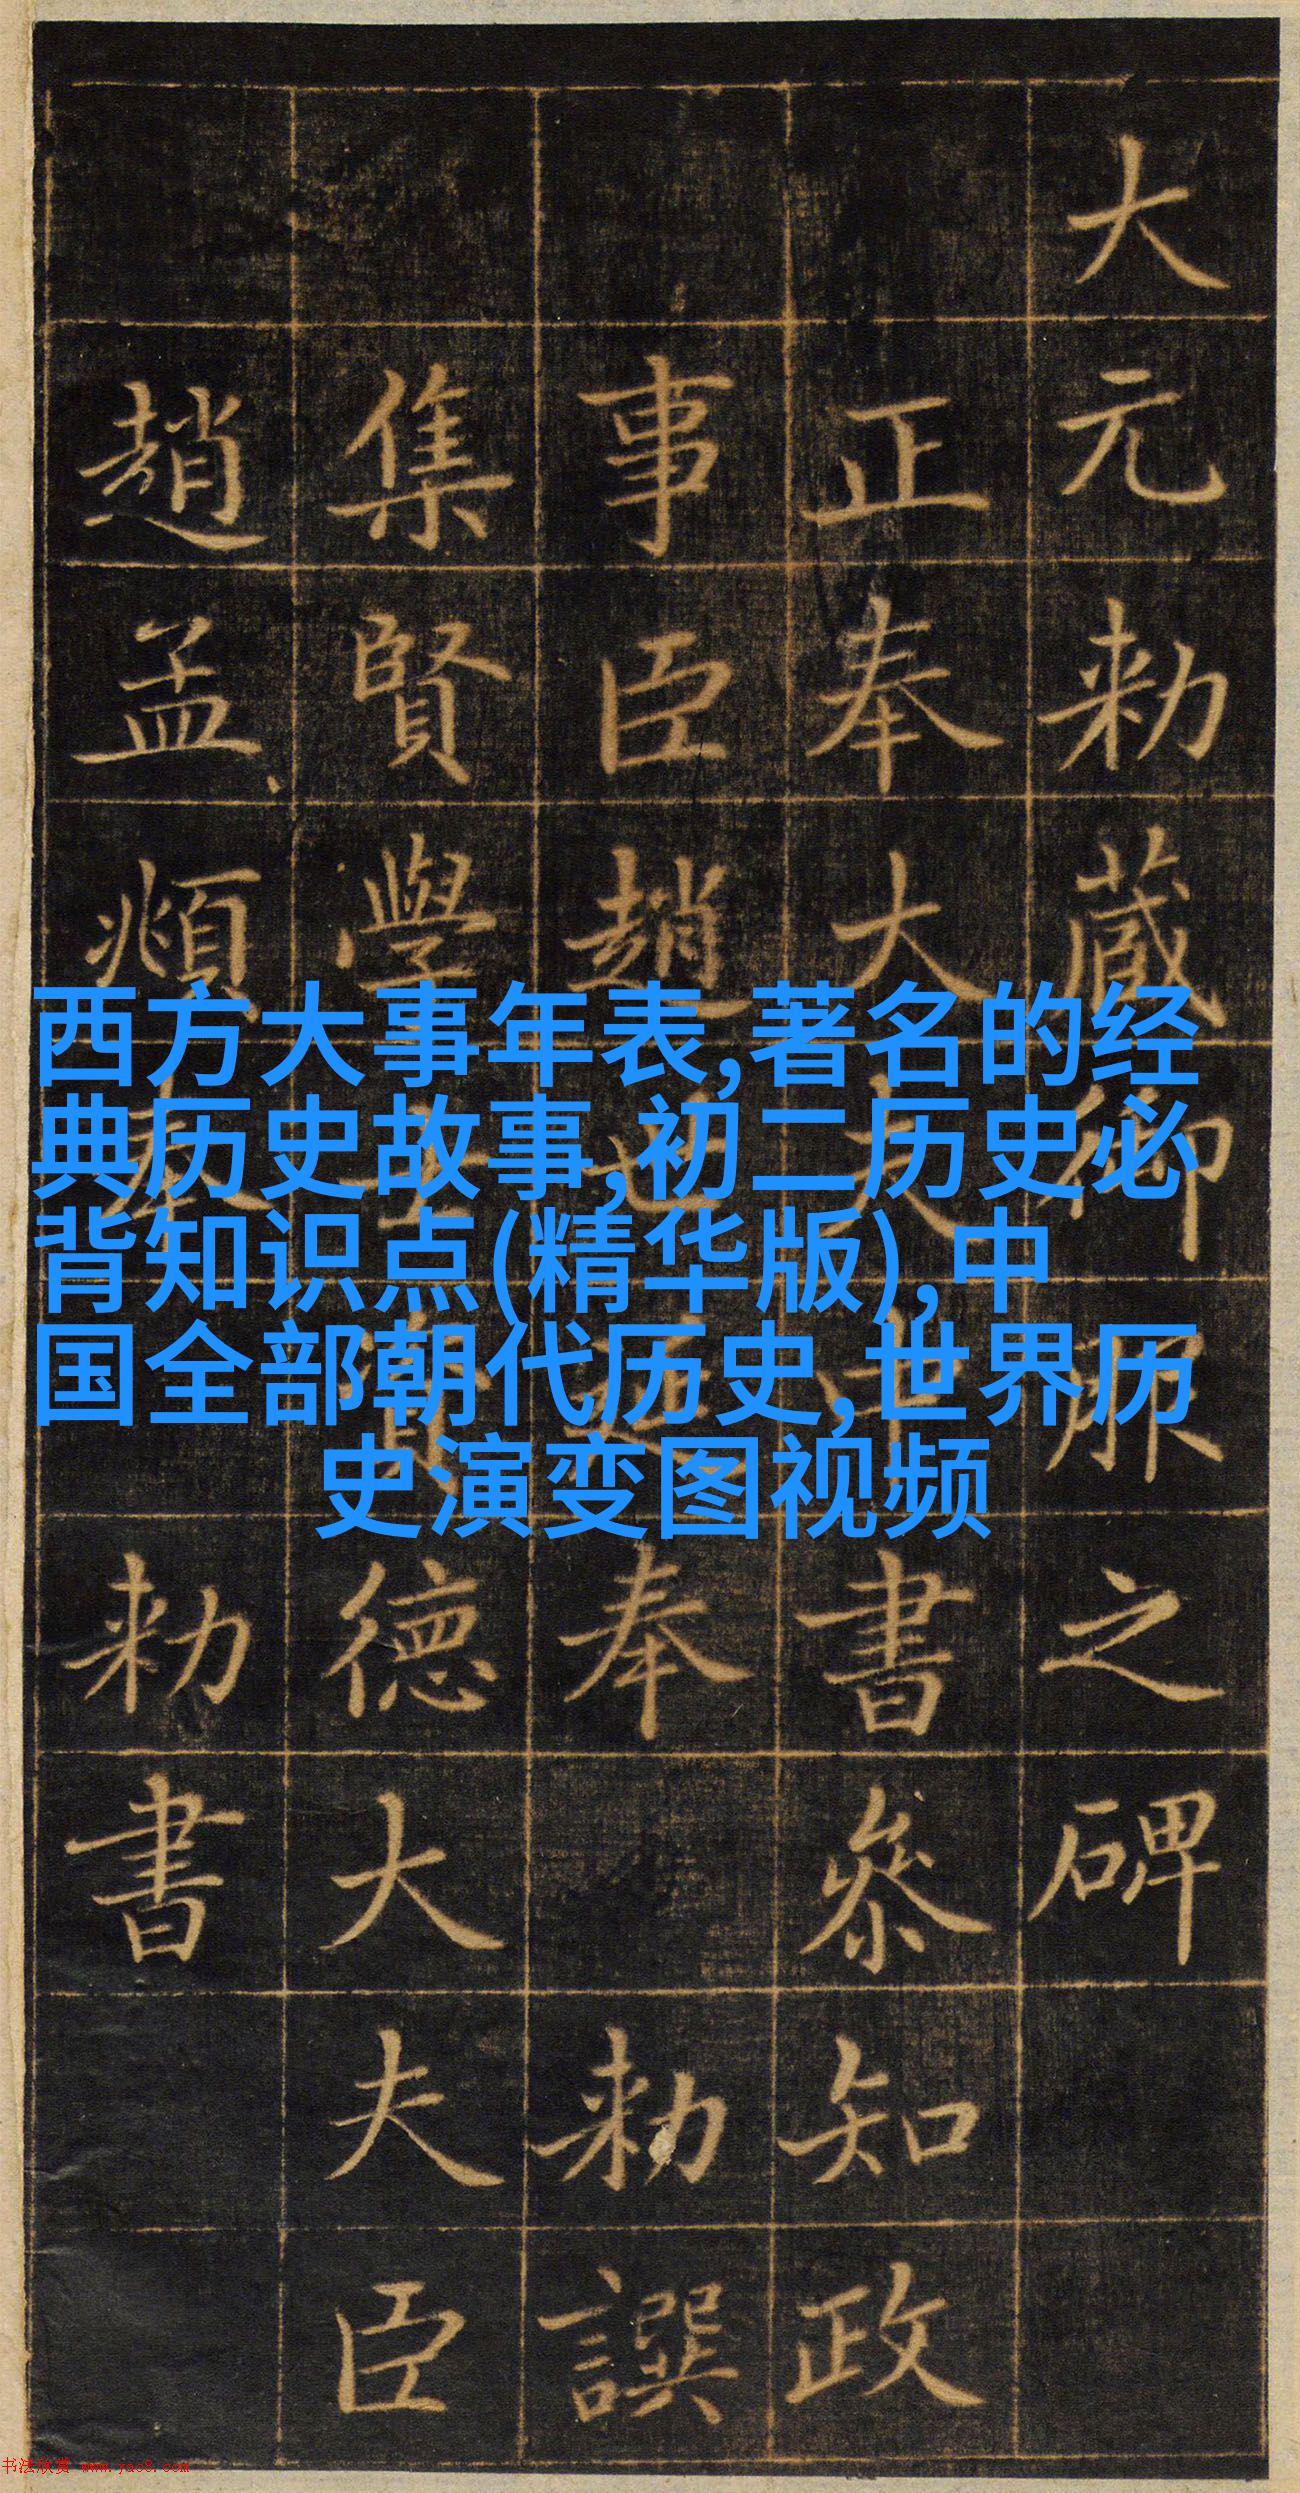 大元勑藏御服之碑
正奉大夫中書叅知政
事臣趙世延奉勑譔
集賢學士資德大夫臣
趙孟頫奉勑書
西方大事年表,著名的经
典历史故事,初二历史必
背知识点(精华版),中
国全部朝代历史,世界历
史演变图视频
书法欣赏 www.yac8.com